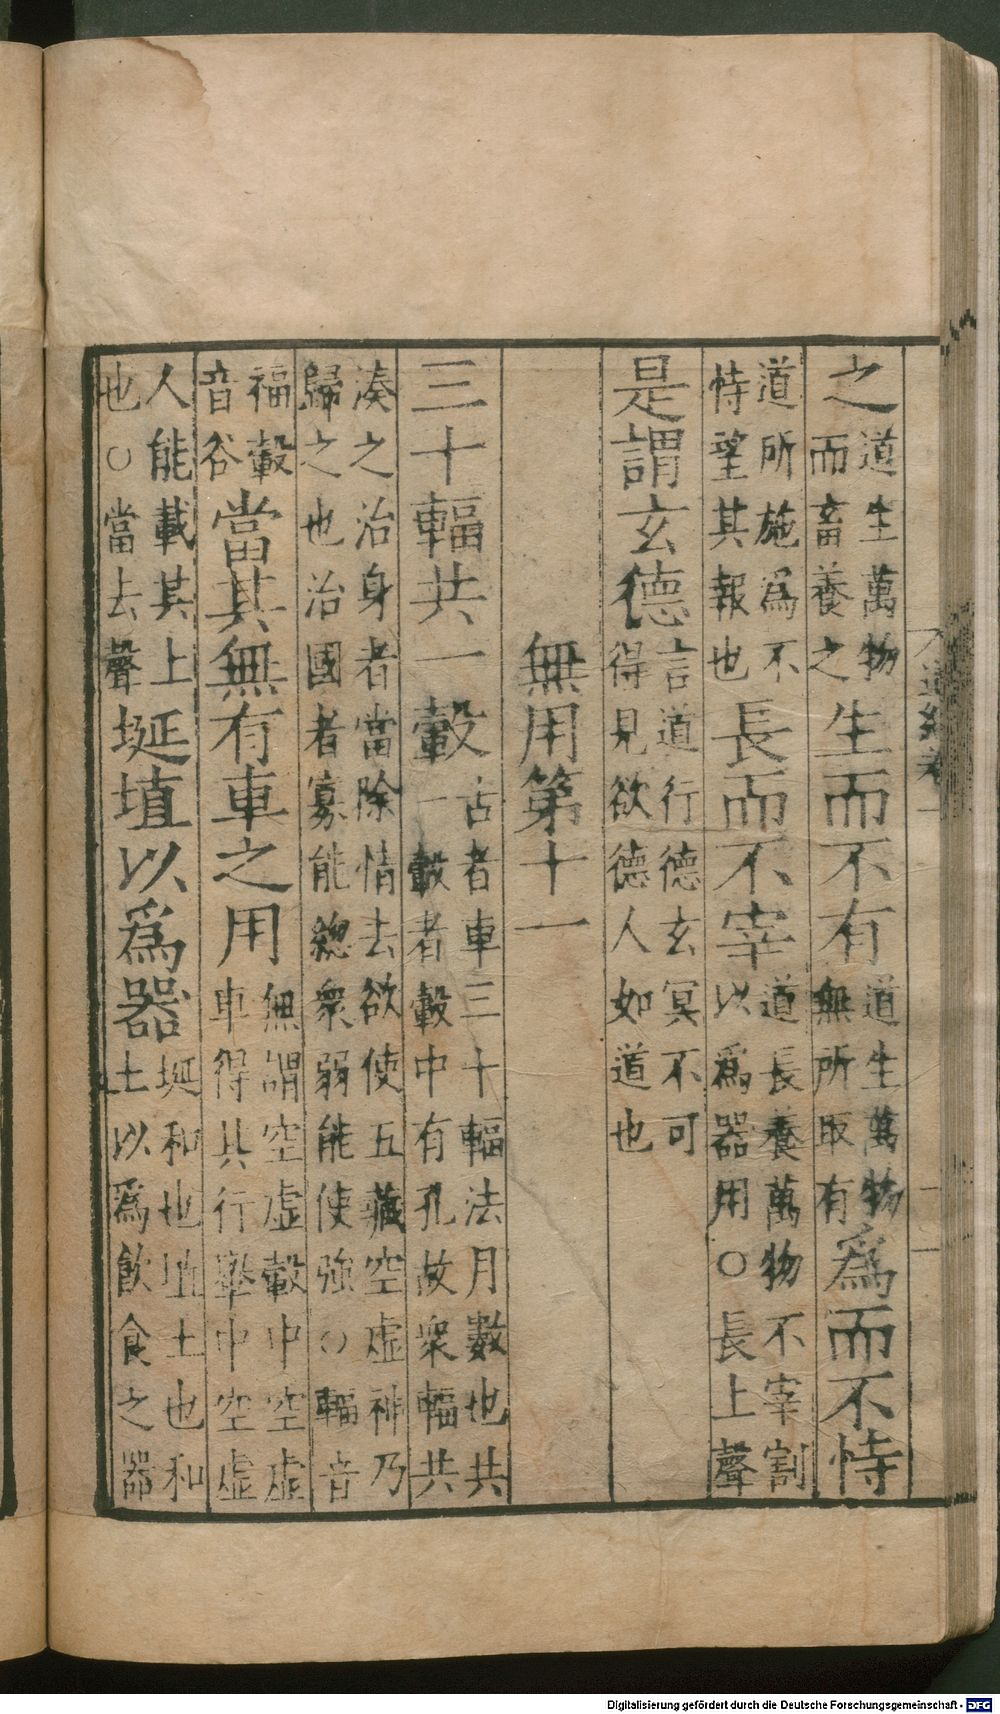 之道生萬物而畜養之生而不有道生萬物無所取有爲而不恃
道所施爲不恃望其報也長而不宰道長養萬物不宰割以爲器用○長上聲
是謂玄德言道行德玄冥不可得見欲德人如道也
無用第十一
三十輻共一轂古者車三十輻法月數也共一轂者轂中有孔故衆輻共
湊之治身者當除情去欲使五藏空虛神乃歸之也治國者寡能總衆弱能使強○輻音
福轂音谷當其無有車之用無謂空虛轂中空虛車得其行轝中空虛
人能載其上也○當去聲埏埴以爲器埏和也埴土也和土以爲飲食之器
Digitalisierung gefördert durch die Deutsche Forschungsgemeinschaft - DFG